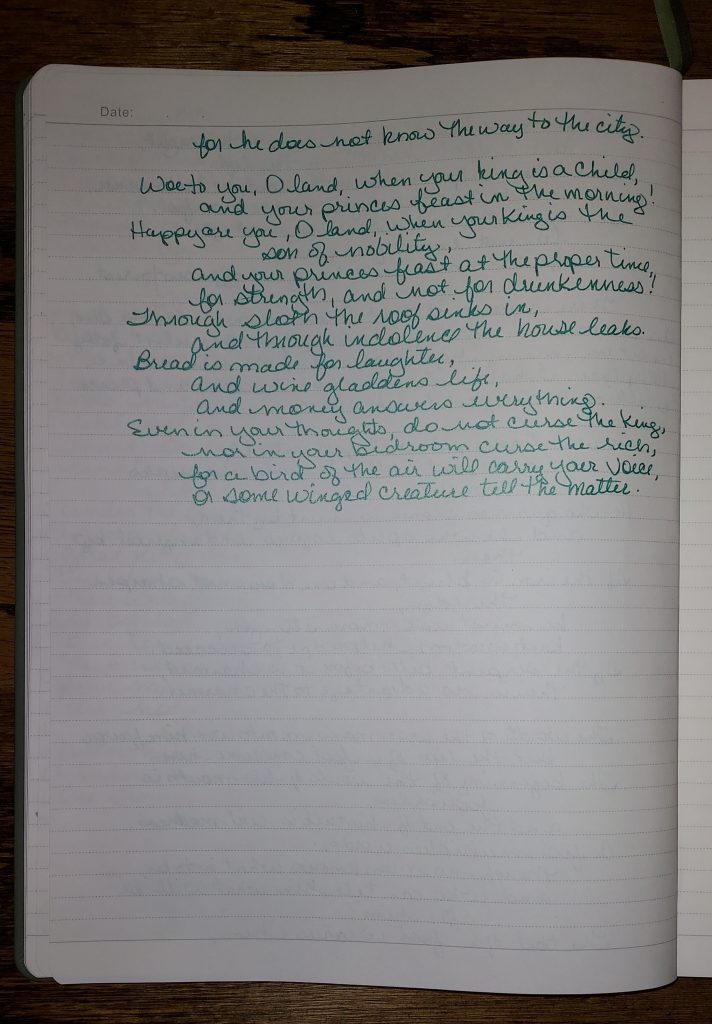 Date:
for he does not know the way to the city.
Woe to you, O land, when your king is a child,
and your princes feast in the morning!
Happy are you, O land, when your King is the
son of nobility,
and your princes feast at the proper time,
for strength, and not for drunkenness!
Through sloth the roof sinks in,
and through indolence the house leaks.
Bread is made for laughter,
and wine gladdens life,
and money answers everything.
Even in your thoughts, do not curse the King,
nor in your bedroom curse the rich,
for a bird of the air will carry your voice,
or some winged creature tell the matter.